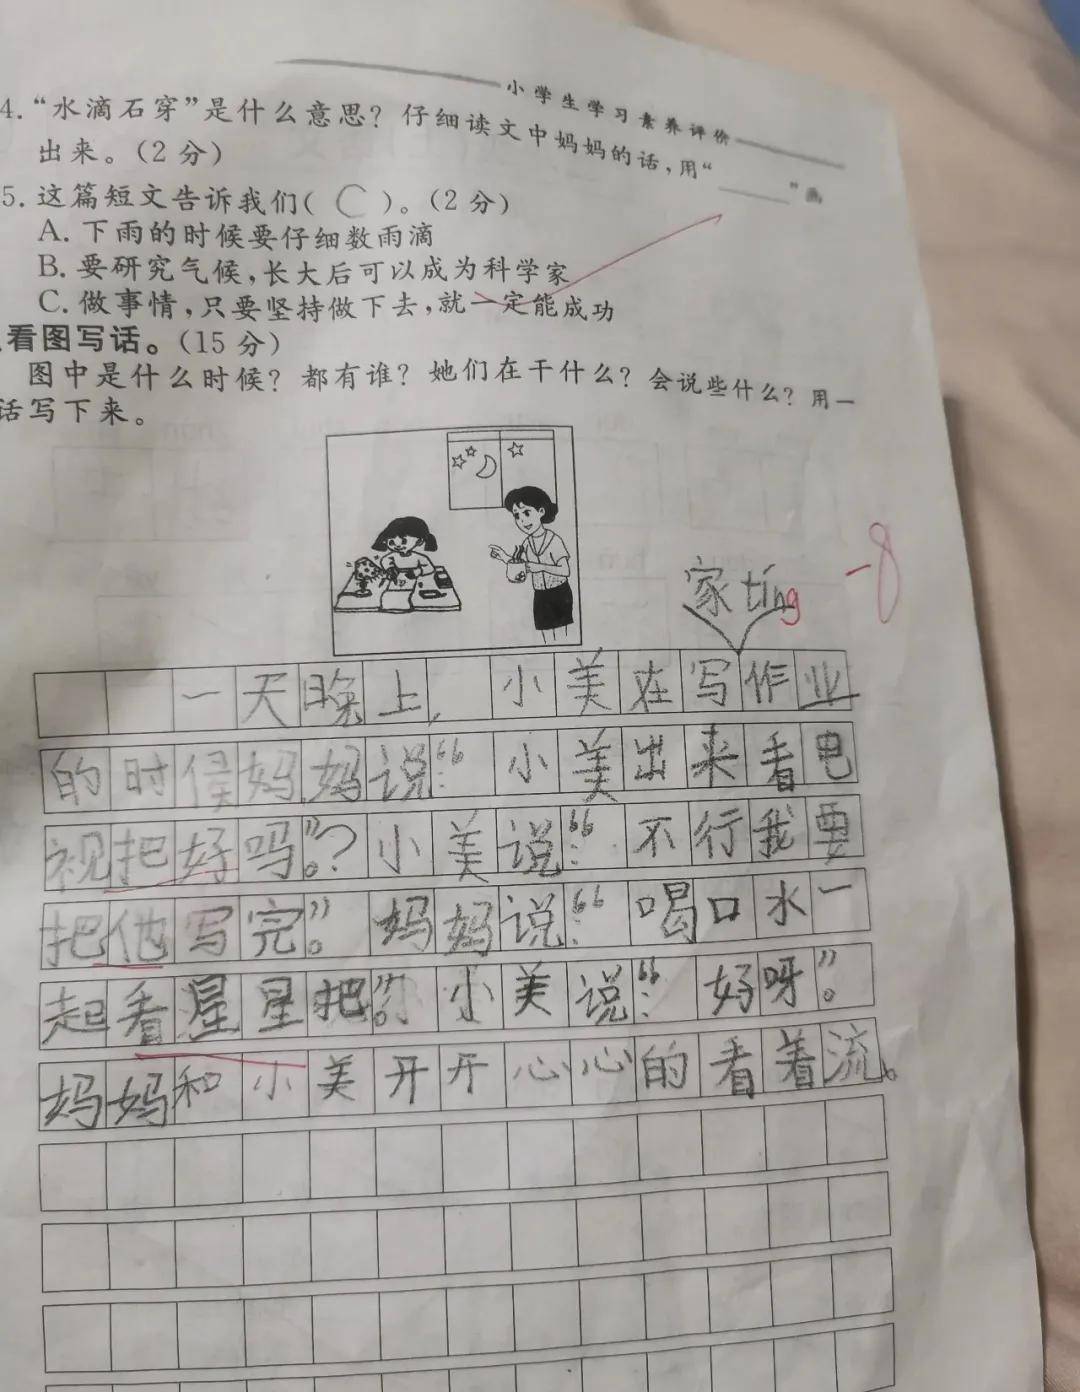 小学生学习素养评价
4.“水滴石穿”是什么意思？仔细读文中妈妈的话，用“______”画
出来。（2分）
5.这篇短文告诉我们( C )。（2分）
A.下雨的时候要仔细数雨滴
B.要研究气候，长大后可以成为科学家
C.做事情，只要坚持做下去，就一定能成功
看图写话。（15分）
图中是什么时候？都有谁？她们在干什么？会说些什么？用一
话写下来。
-8
家tíng
一天晚上，小美在写作业
的时侯妈妈说：“小美出来看电
视把好吗”。？小美说：“不行我要
把他写完”。妈妈说：“喝口水一
起看星星把”。小美说：“好呀”。
妈妈和小美开开心心的看着流。